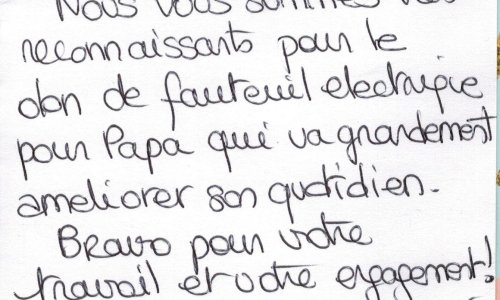 Nous vous sommes
reconnaissants pour le
don de fauteuil electrique
pour Papa qui va grandement
ameliorer son quotidien.
Bravo pour votre
travail et votre engagement!